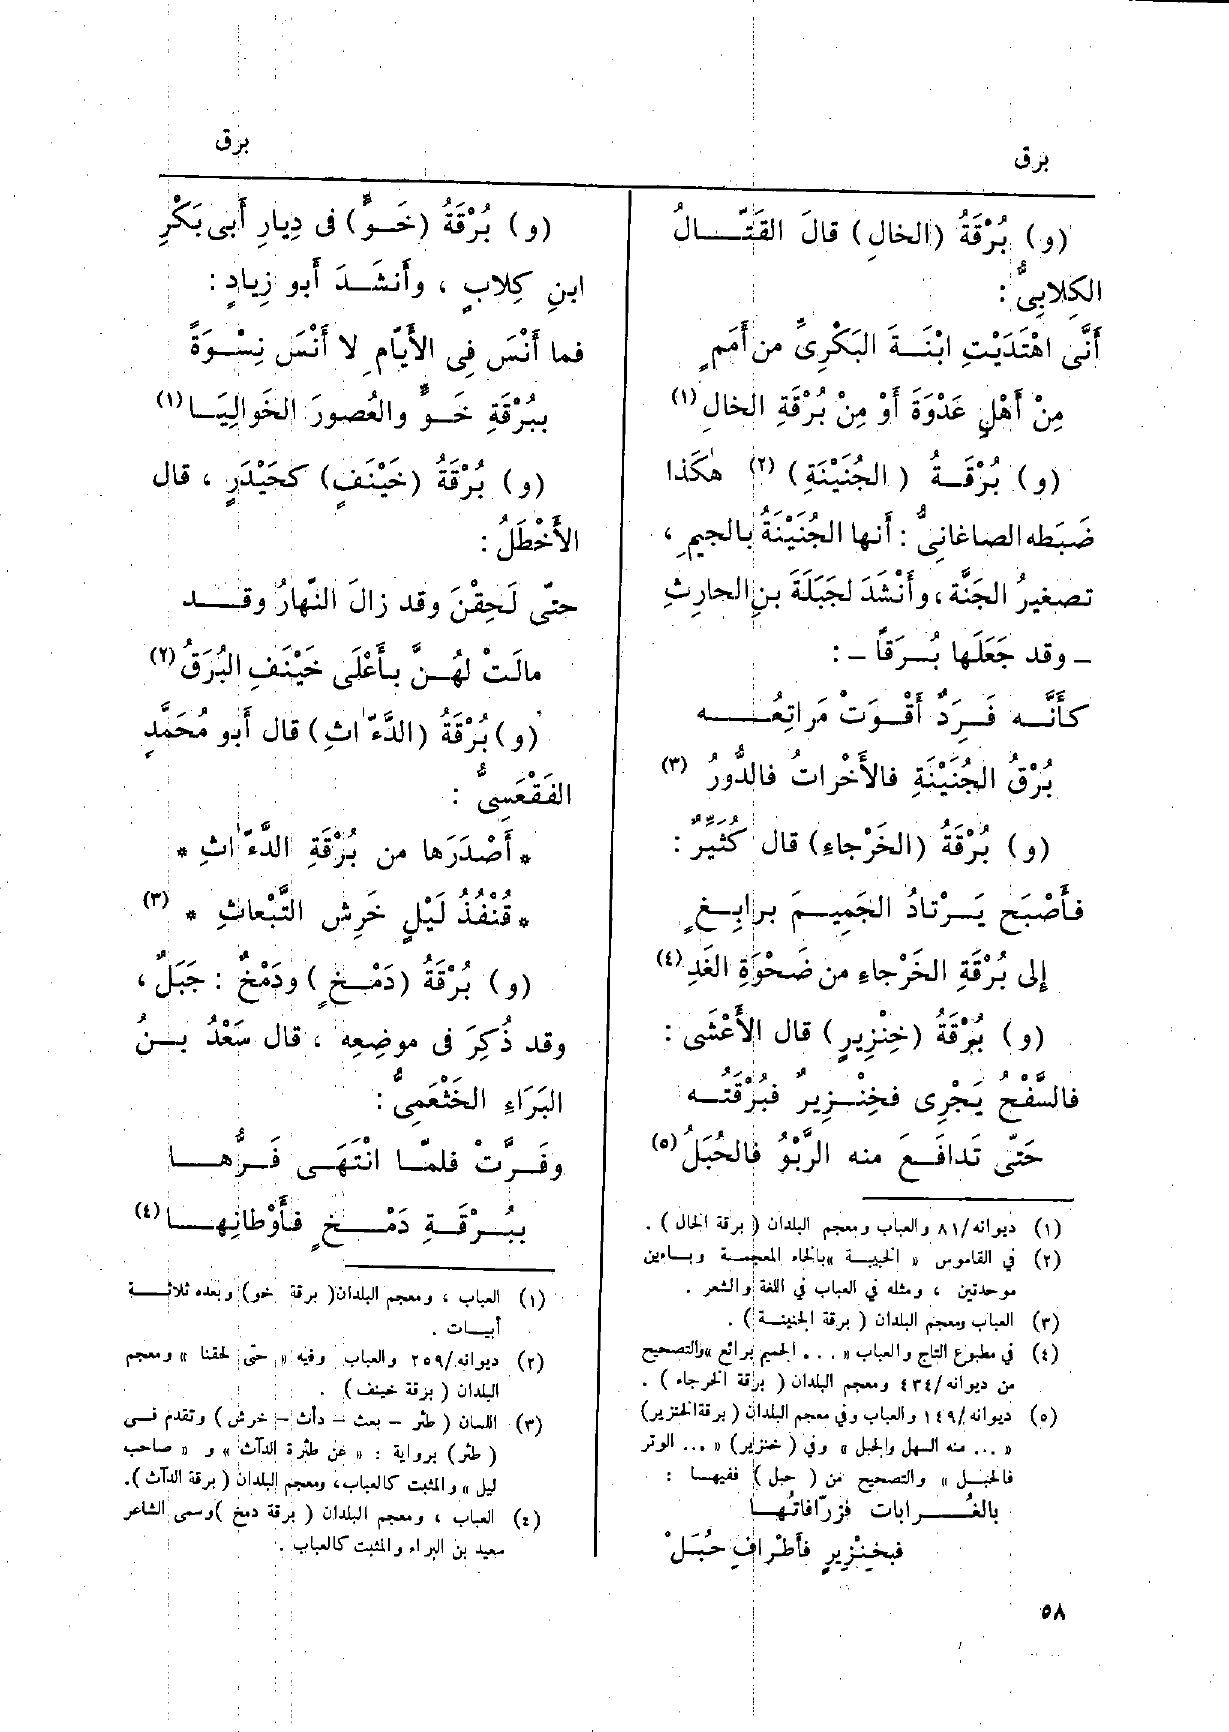 برق
برق
(و) بُرْقَةُ (الخالِ) قالَ القَتّالُ
الكِلابِىُّ :
أَنَّى اهْتَدَيْتِ ابْنَةَ البَكْرِىِّ من أَمَمٍ
مِنْ أَهْلِ عَدْوَةَ أَوْ مِنْ بُرْقَةِ الخالِ (١)
(و) بُرْقَةُ ( الجُنَيْنَةِ) (٢) هٰكَذا
ضَبَطه الصاغانىُّ : أَنها الجُنَيْنَةُ بالجيمِ ،
تصغيرُ الجَنَّة ، وأَنْشَدَ لجَبَلَةَ بنِ الحارِثِ
ـ وقد جَعَلَها بُرَقاً ـ :
كأَنَّه فَرَدٌ أَقْوَتْ مَراتِعُه
بُرْقُ الجُنَيْنَةِ فالأَخْراتُ فالدُّورُ (٣)
(و) بُرْقَةُ (الخَرْجاءِ) قال كُثَيِّرٌ :
فأَصْبَح يَرْتادُ الجَمِيمَ برابِغٍ
إلى بُرْقَةِ الخَرْجاءِ من ضَحْوَةِ الغَدِ (٤)
(و) بُرْقَةُ (خِنْزِيرٍ) قال الأَعْشَى :
فالسَّفْحُ يَجْرِى فخِنْزِيرٌ فبُرْقَتُه
حَتّى تَدافَعَ منه الرَّبْوُ فالحُبَلُ (٥)
(١) ديوانه/٨١ والعباب ومعجم البلدان ( برقة الخال ) .
(٢) في القاموس « الخبيبة »بالخاء المعجمة وباءين
موحدتين ، ومثله في العباب في اللغة والشعر .
(٣) العباب ومعجم البلدان ( برقة الجنينة ) .
(٤) في مطبوع التاج والعباب « . . . الجميم برائع »والتصحيح
من ديوانه/٤٣٤ ومعجم البلدان ( برقة الخرجاء ) .
(٥) ديوانه/١٤٩ والعباب وفي معجم البلدان ( برقةالخنزير)
« ... منه السهل والجبل » وفي ( خنزير) « ... الوتر
فالحبل » والتصحيح من ( حبل ) ففيها :
بالغُرابات فزرّافاتُها
فبخِنْزِيرٍ فأَطْرافِ حُبَلْ
٥٨
(و) بُرْقَةُ (خَوٍّ) فى دِيارِ أَبى بَكْرِ
ابنِ كِلابٍ ، وأَنشَدَ أَبو زِيادٍ :
فما أَنْسَ فِى الأَيّامِ لا أَنْسَ نِسْوَةً
ببُرْقَةِ خَوٍّ والعُصورَ الخَوالِيَا (١)
(و) بُرْقَةُ (خَيْنَفٍ) كحَيْدَرٍ ، قال
الأَخْطَلُ :
حتّى لَحِقْنَ وقد زالَ النَّهارُ وقد
مالَتْ لهُنَّ بأَعْلَى خَيْنَفِ البُرَقُ (٢)
(و) بُرْقَةُ (الدَّءّاثِ) قال أَبو مُحَمَّدٍ
الفَقْعَسِىُّ :
* أَصْدَرَها من بُرْقَةِ الدَّءّاثِ *
* قُنْفُذُ لَيْلٍ خَرِش التَّبْعاثِ * (٣)
(و) بُرْقَةُ (دَمْخٍ) ودَمْخٌ : جَبَلٌ ،
وقد ذُكِرَ فى موضِعِه ، قال سَعْدُ بنُ
البَرَاءِ الخَثْعَمِىُّ :
وفَرَّتْ فلمّا انْتَهَى فَرُّها
ببُرْقَةِ دَمْخٍ فأَوْطانِها (٤)
(١) العباب ، ومعجم البلدان( برقة خو) وبعده ثلاثة
أبيات .
(٢) ديوانه/٢٥٩ والعباب وفيه « حتى لحقنا » ومعجم
البلدان ( برقة خينف ) .
(٣) اللسان ( طثر – بعث – دأث – خرش ) وتقدم فى
( طثر ) برواية : « من طثرة الدآث » و « صاحب
ليل » والمثبت كالعباب ، ومعجم البلدان ( برقة الدآث ).
(٤) العباب ، ومعجم البلدان ( برقة دمخ )وسمى الشاعر
سعيد بن البراء والمثبت كالعباب .